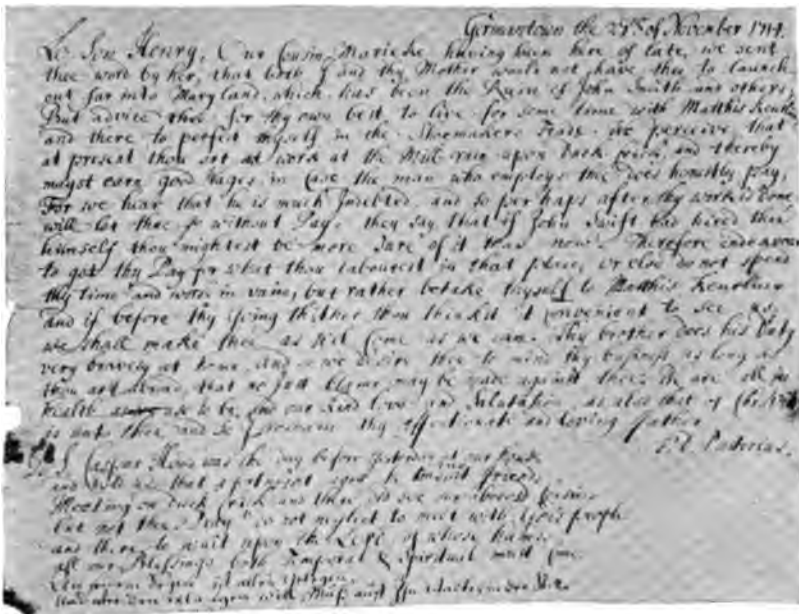 Germantown the 21th of November 1714.
Lo Son Henry, Our Cousin Marieke having been here of late, we sent
thee word by her, that both I and thy Mother would not have thee to Launch
out far into Maryland, which has been the Ruin of John Smith and others
But advice thee for thy own best, to live for some time with Matthis
and there to perfect thyself in the Shoemakers Trade. we perceive, that
at present thou art at work at the Mill upon Duck Crick, and thereby
mayst earn good Wages in Case the man who employs thee does honestly pay,
For we hear that he is much Indebted, and so perhaps after thy work is done
will let thee go without Pay. they say that if John Swift had hired thee
himself thou mightest be more sure of it than now. Therefore endeavour
to get thy Pay for what thou labourest in that place, or else do not spend
thy time and work in vain, but rather betake thyself to Matthis
and if before thy going thither thou thinkest it convenient to see us,
we shall make thee as well Come as we can. Thy brother does his Duty
very bravely at home, and so we desire thee to mind thy business as long as
thou art abroad, that no just blame may be made against thee. We are all in
health as use to be, and our kind love and Salutation, as also that of
is unto thee, and so I remain thy affectionate and loving father
P. S. Caspar was the day before yesterday at our house
and told us that a fortnight agoe he friends
Meeting on Duck Crick and there did see our Cousin
but not thee. I pray do not neglect to meet with Gods people
and there to wait upon the Lord of whose hands
all our Blessings both Temporal & Spiritual must come